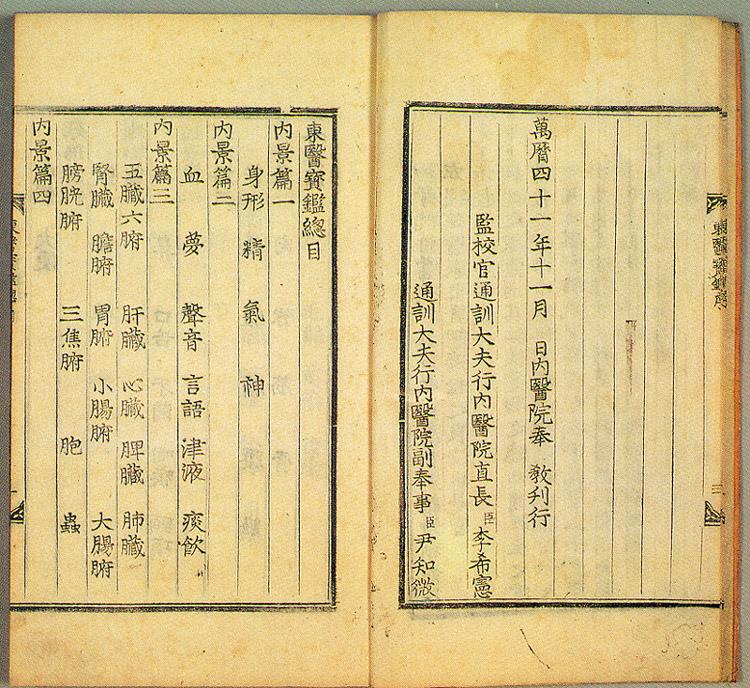 東醫寶鑑序
三
萬曆四十一年十一月 日內醫院奉 敎刋行
監校官通訓大夫行內醫院直長臣李希憲
通訓大夫行內醫院副奉事臣尹知微
東醫寶鑑總目
內景篇一
身形 精 氣 神
內景篇二
血 夢 聲音 言語 津液 痰飮
內景篇三
五臟六腑 肝臟 心臟 脾臟 肺臟
腎臟 膽腑 胃腑 小腸腑 大腸腑
膀胱腑 三焦腑 胞 蟲
內景篇四